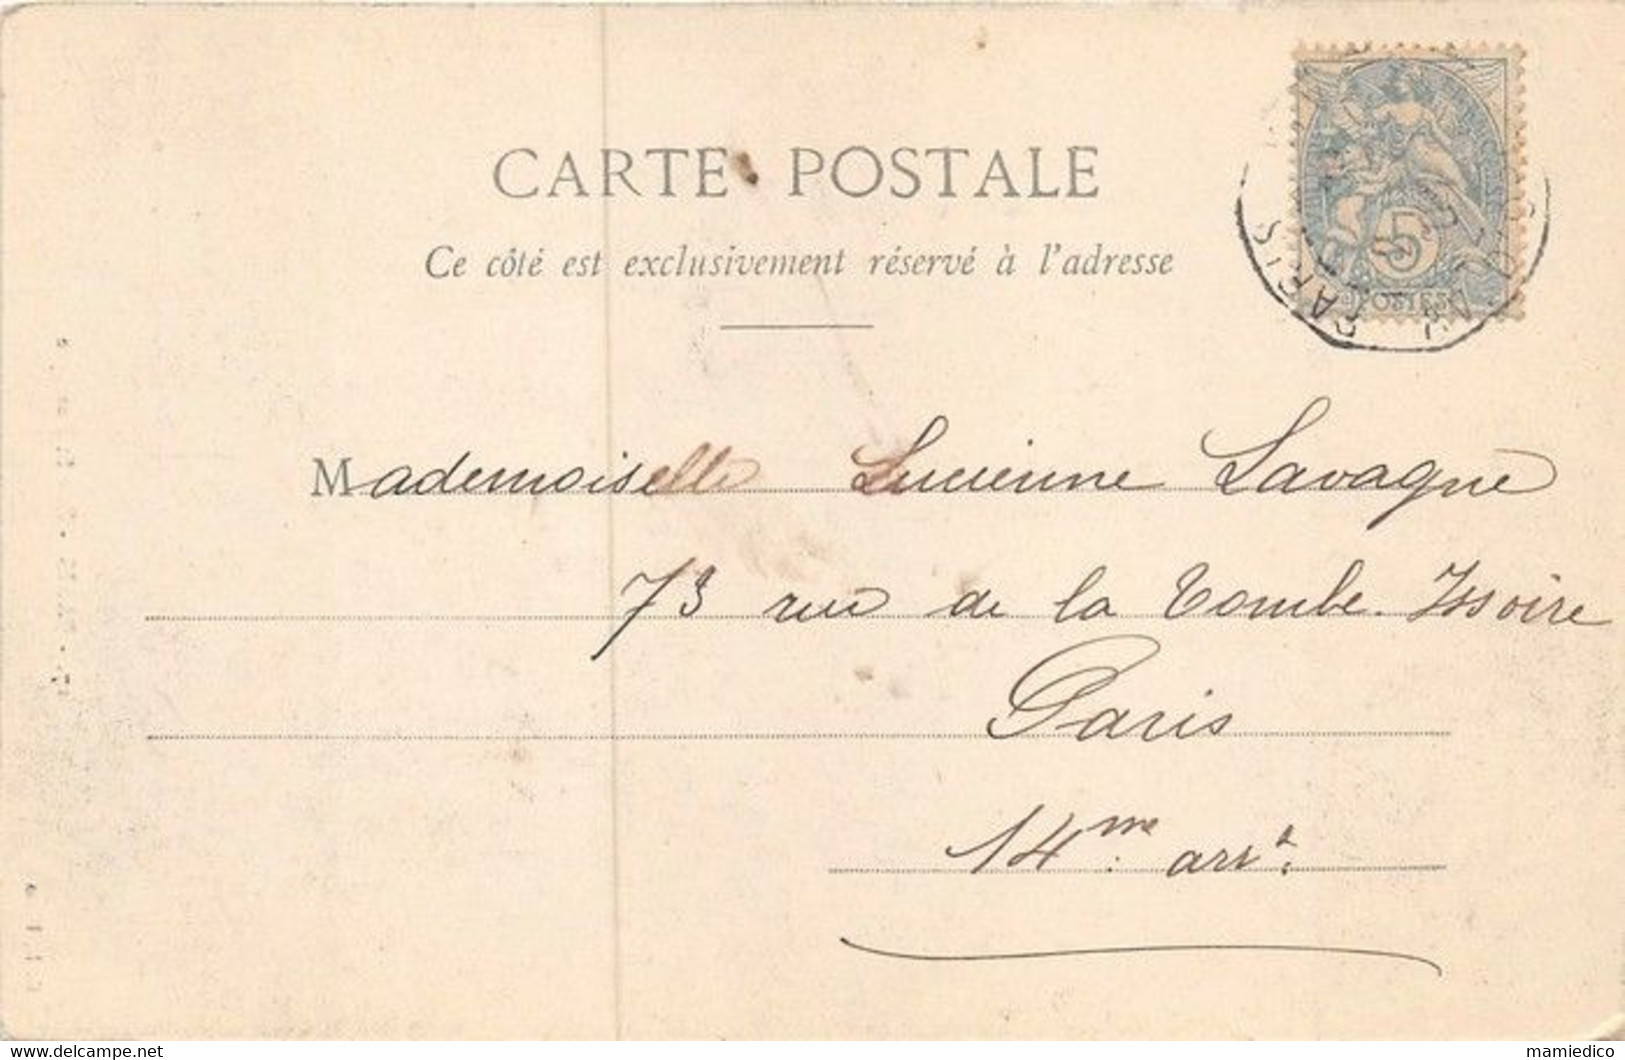 CARTE POSTALE
Ce côté est exclusivement réservé à l'adresse
5
POSTES
PARIS
Mademoiselle Lucienne Lavagne
73 rue de la Tombe-Issoire
Paris
14me. arrt.
https://www.delcampe.net
mamiedico